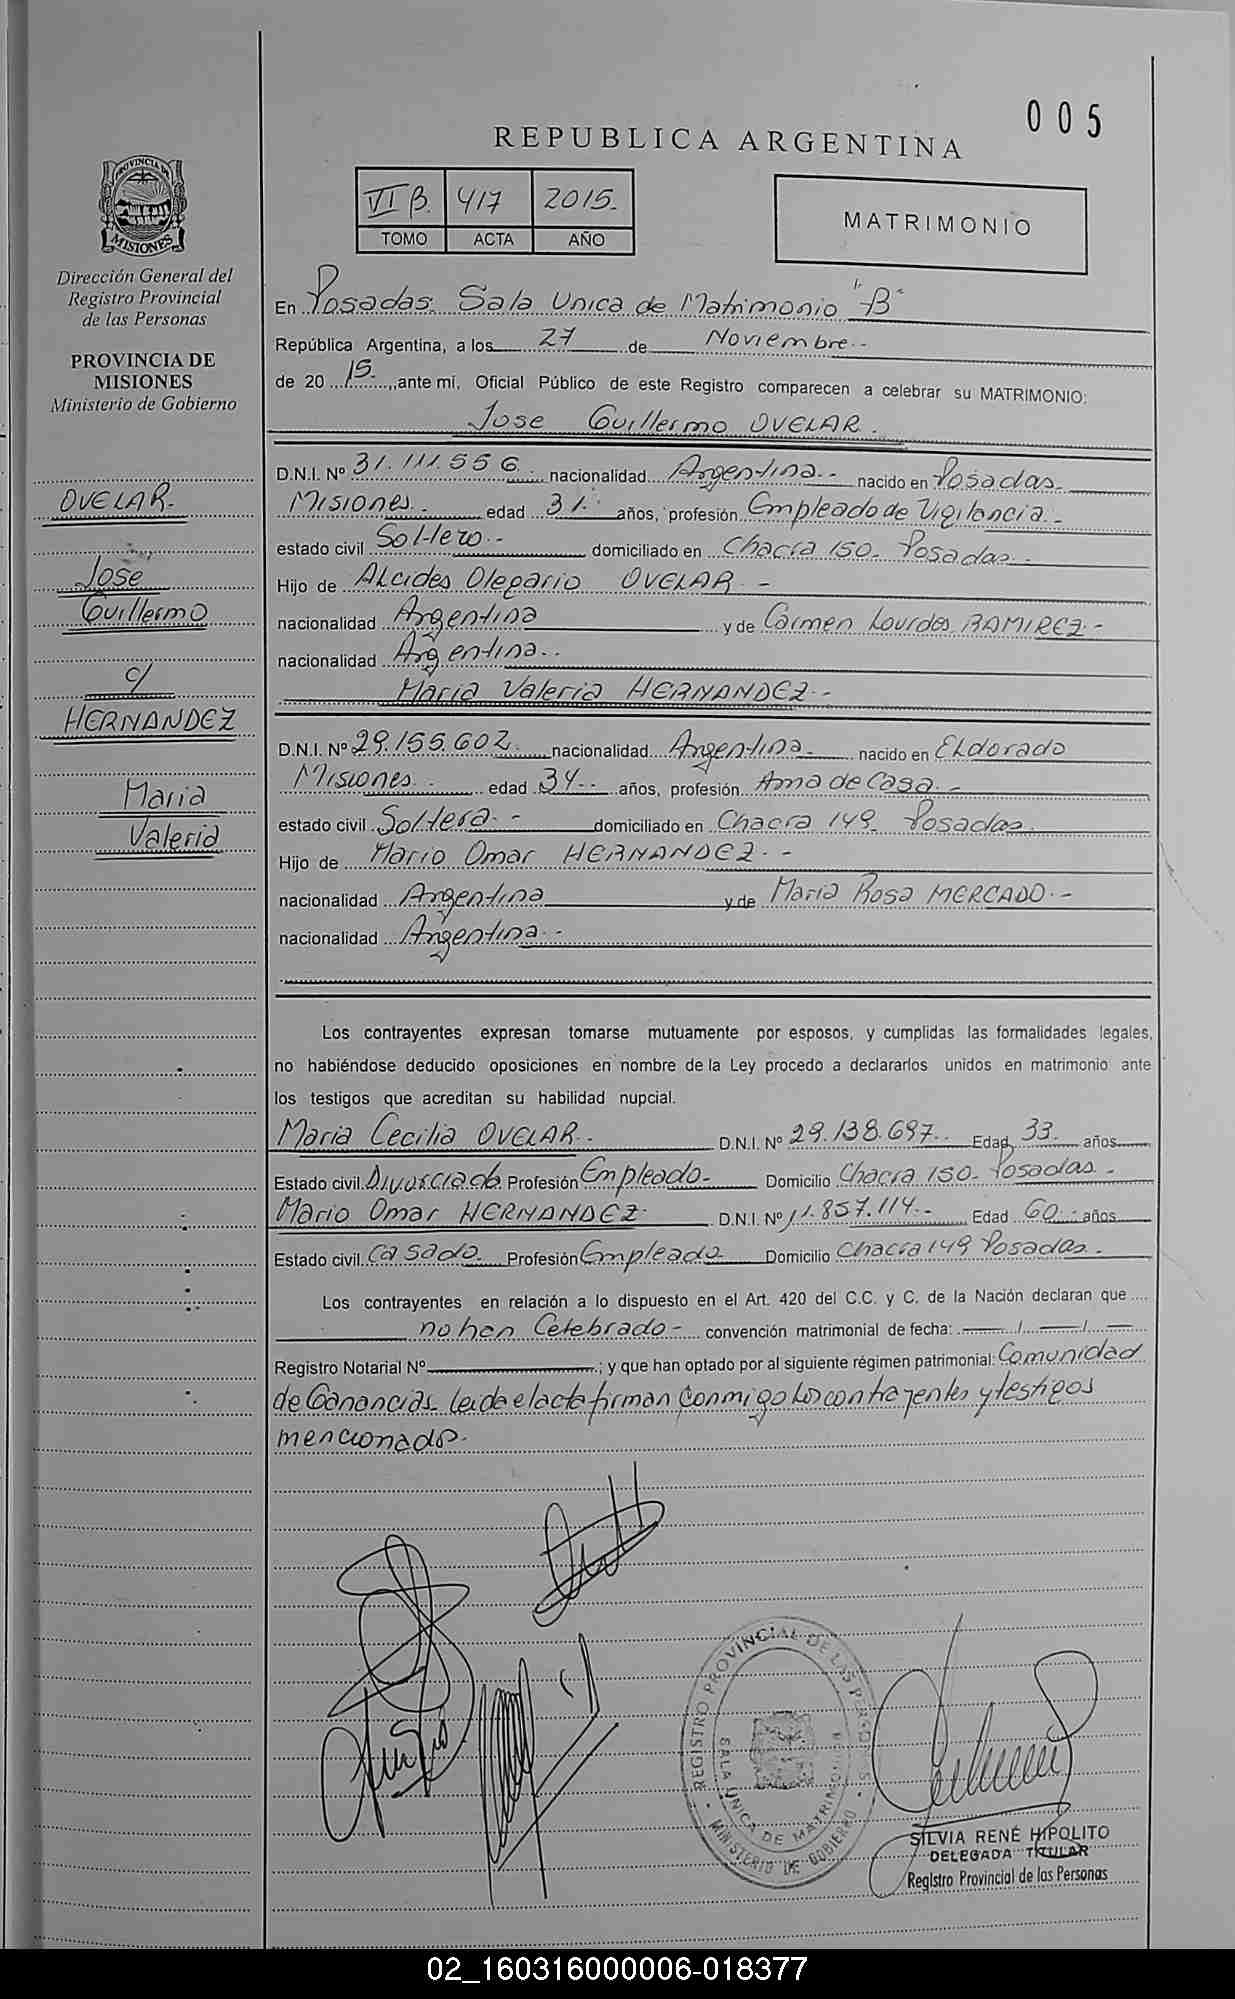 005
REPUBLICA ARGENTINA
VI B. 417 2015.
TOMO ACTA AÑO
MATRIMONIO
PROVINCIA DE MISIONES
Dirección General del
Registro Provincial
de las Personas
PROVINCIA DE
MISIONES
Ministerio de Gobierno
OVELAR.
Jose
Guillermo
c/
HERNANDEZ
Maria
Valeria
En Posadas. Sala Unica de Matrimonio "B"
República Argentina, a los 27 de Noviembre.-
de 20 15. ,ante mí, Oficial Público de este Registro comparecen a celebrar su MATRIMONIO:
Jose Guillermo OVELAR.
D.N.I. Nº 31.111.556. nacionalidad Argentina.- nacido en Posadas.
Misiones.- edad 31. años, profesión Empleado de Vigilancia.-
estado civil Soltero.- domiciliado en Chacra 150. Posadas.
Hijo de Alcides Olegario OVELAR.-
nacionalidad Argentina y de Carmen Lourdes RAMIREZ.-
nacionalidad Argentina..
Maria Valeria HERNANDEZ.-
D.N.I. Nº 29.155.602. nacionalidad Argentina. nacido en Eldorado
Misiones.- edad 34.. años, profesión Ama de Casa.-
estado civil Soltera.- domiciliado en Chacra 149. Posadas.
Hijo de Mario Omar HERNANDEZ.-
nacionalidad Argentina y de Maria Rosa MERCADO.-
nacionalidad Argentina.-
Los contrayentes expresan tomarse mutuamente por esposos, y cumplidas las formalidades legales,
no habiéndose deducido oposiciones en nombre de la Ley procedo a declararlos unidos en matrimonio ante
los testigos que acreditan su habilidad nupcial.
Maria Cecilia OVELAR. D.N.I. Nº 29.138.697. Edad 33. años
Estado civil Divorciada Profesión Empleado- Domicilio Chacra 150. Posadas.-
Mario Omar HERNANDEZ. D.N.I. Nº 11.857.114.- Edad 60. años
Estado civil Casado. Profesión Empleado Domicilio Chacra 149 Posadas.
Los contrayentes en relación a lo dispuesto en el Art. 420 del C.C. y C. de la Nación declaran que
no han Celebrado- convención matrimonial de fecha: / /
Registro Notarial Nº ; y que han optado por al siguiente régimen patrimonial: Comunidad
de Ganancias. Leida el acta firman conmigo los contrayentes y testigos
mencionados.
REGISTRO PROVINCIAL DE LAS PERSONAS
SALA ÚNICA DE MATRIMONIO
MINISTERIO DE GOBIERNO
SILVIA RENÉ HIPOLITO
DELEGADA TITULAR
Registro Provincial de las Personas
02_160316000006-018377